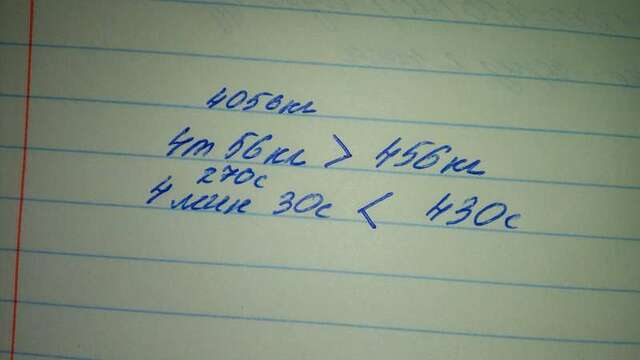 4056кг
4т 56кг > 456кг
270с
4 мин 30с < 430с